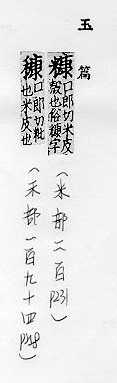 玉篇
糠 口郎切米皮
殼也俗穅字
(米部二百 p231)
穅 口郎切穀
也米皮也
(禾部一百九十四 p228)